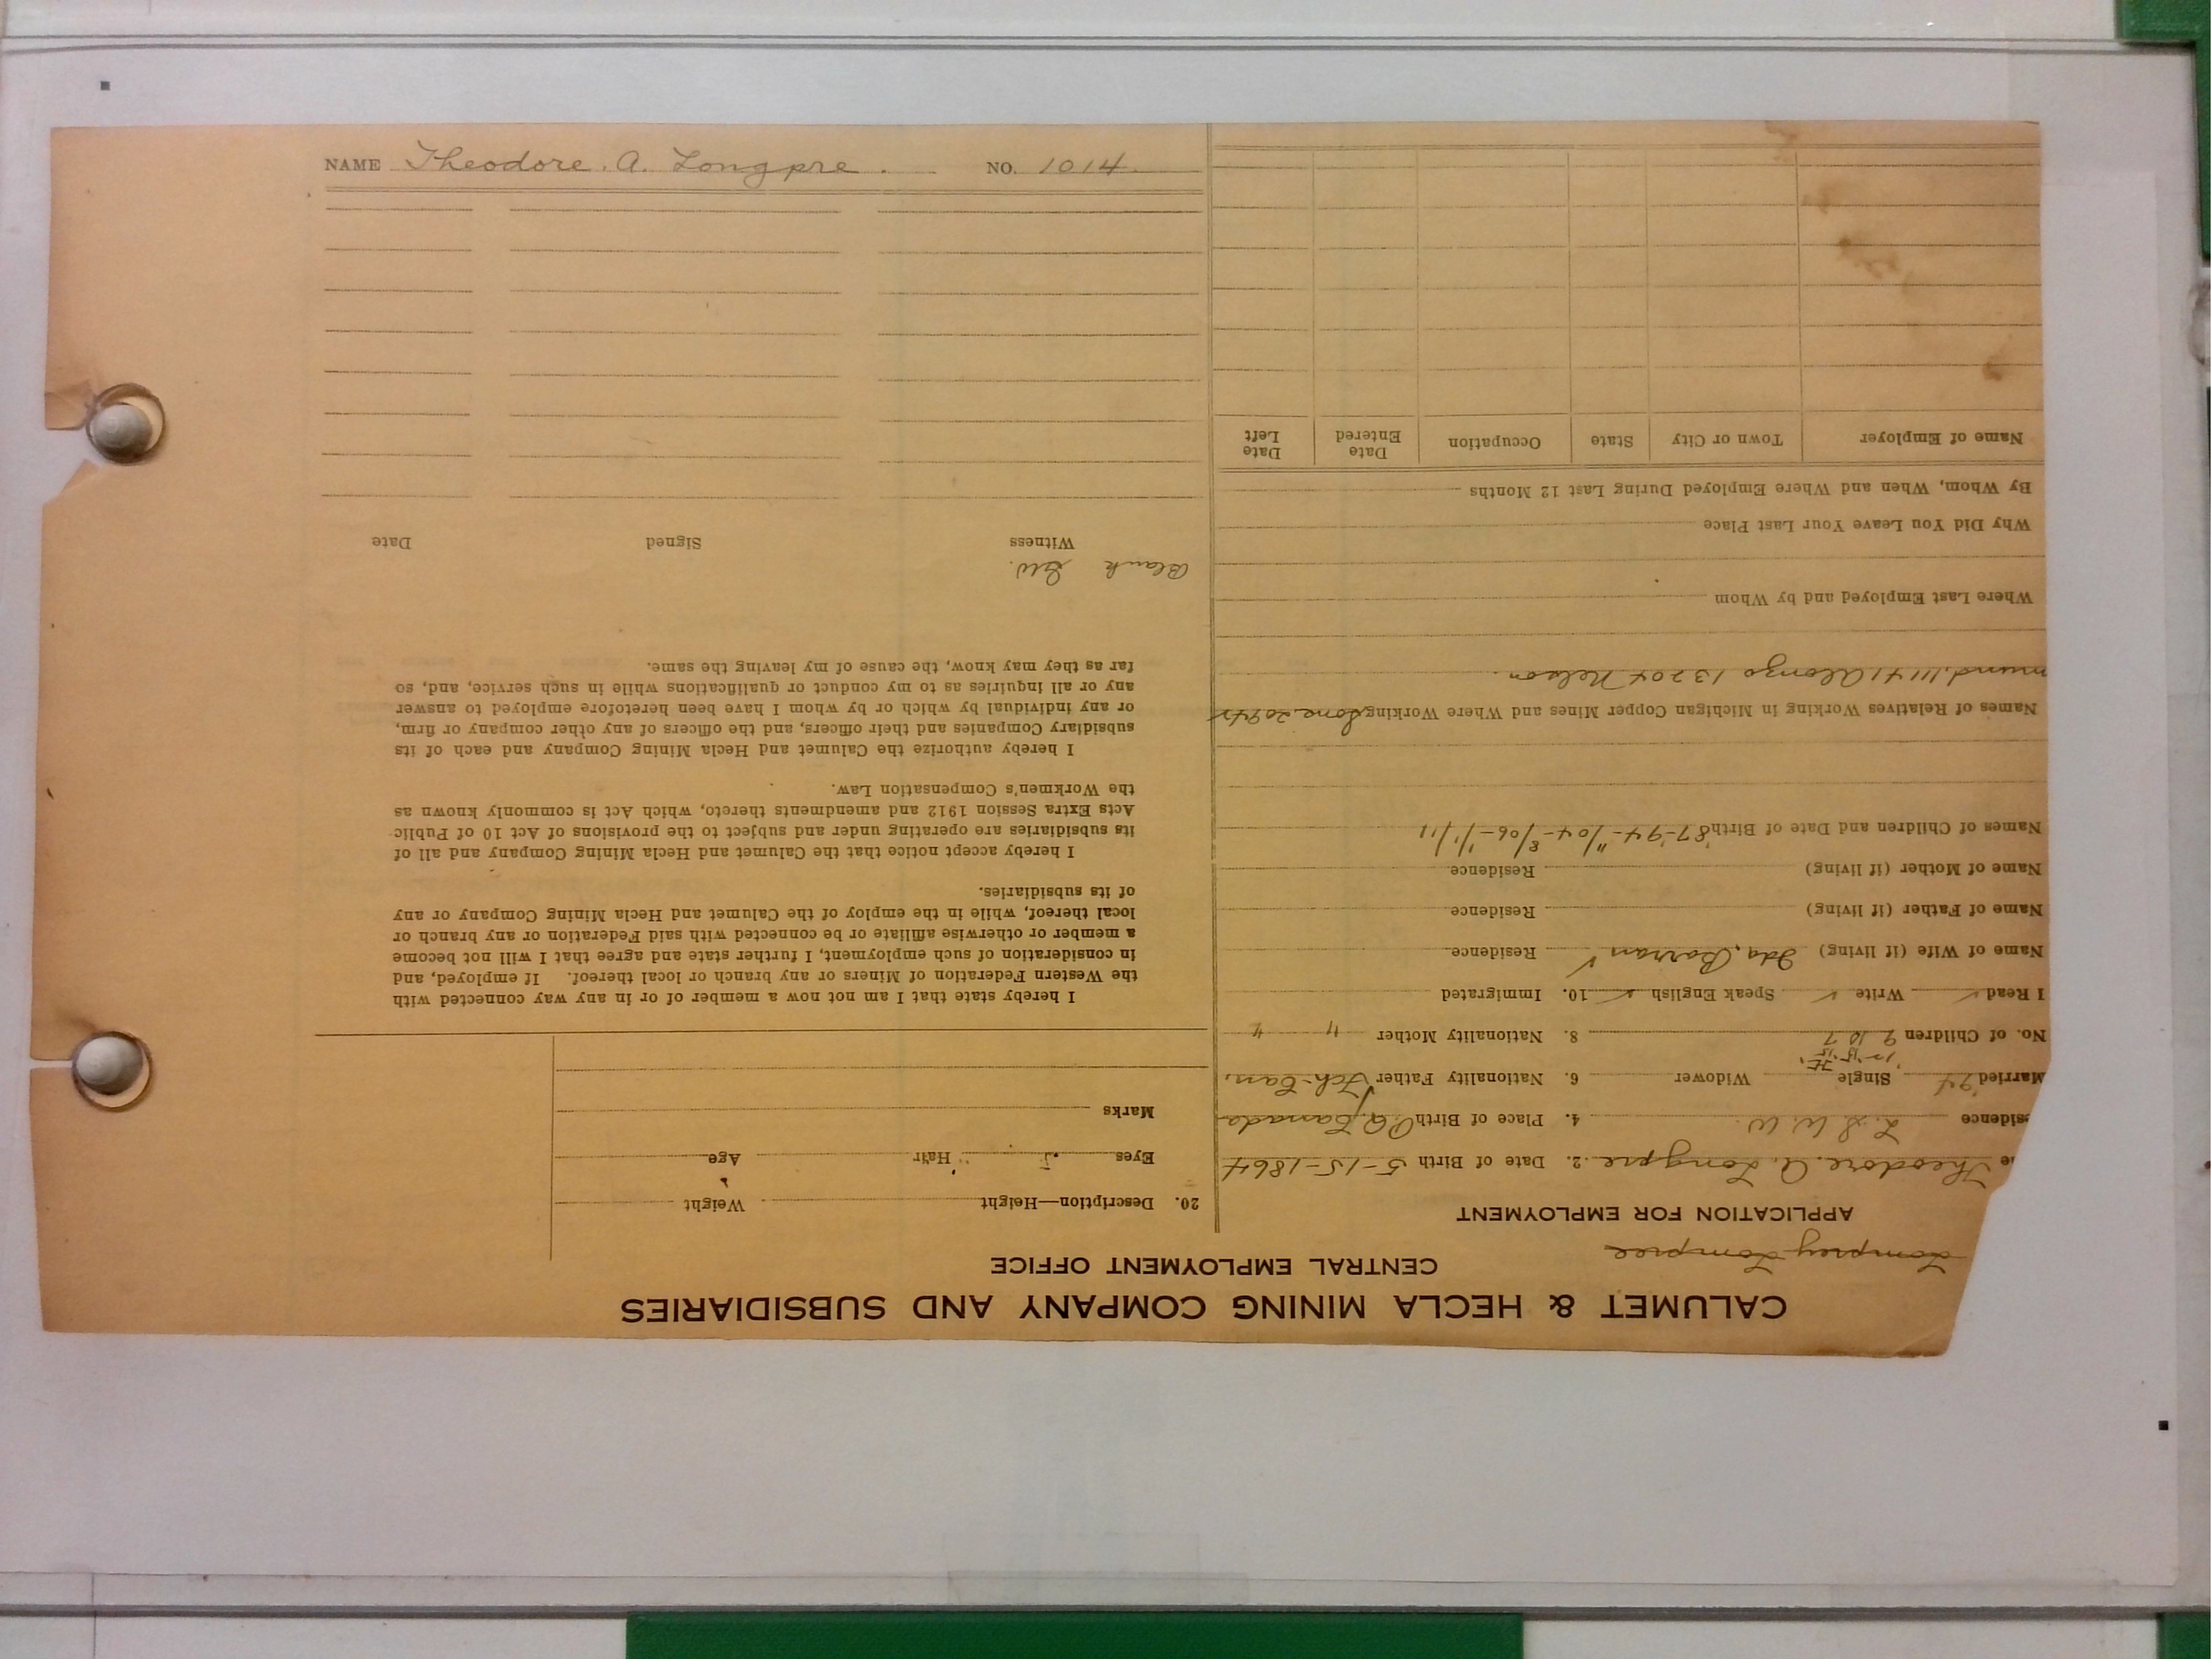 CALUMET & HECLA MINING COMPANY AND SUBSIDIARIES
CENTRAL EMPLOYMENT OFFICE
Lomprey Lompree
APPLICATION FOR EMPLOYMENT
Theodore. A. Longpre 2. Date of Birth 5-15-1864
sidence L. S W. W 4. Place of Birth P.Q. Canada
Married 94 Single Widower 6. Nationality Father Fch-Can.
No. of Children 9 10 7 8. Nationality Mother " "
I Read ✓ Write ✓ Speak English ✓ 10. Immigrated
Name of Wife (if living) Ida, Barran ✓ Residence
Name of Father (if living) Residence
Name of Mother (if living) Residence
Names of Children and Date of Birth 87-94-11/04-8/06-1/1/11
Names of Relatives Working in Michigan Copper Mines and Where Working Sons 2094
mund. 11141 Alonzo 13204 Nelson.
Where Last Employed and by Whom
Why Did You Leave Your Last Place
By Whom, When and Where Employed During Last 12 Months
Name of Employer Town or City State Occupation Date Entered Date Left
20. Description—Height Weight
Eyes Hair Age
Marks
I hereby state that I am not now a member of or in any way connected with
the Western Federation of Miners or any branch or local thereof. If employed, and
in consideration of such employment, I further state and agree that I will not become
a member or otherwise affiliate or be connected with said Federation or any branch or
local thereof, while in the employ of the Calumet and Hecla Mining Company or any
of its subsidiaries.
I hereby accept notice that the Calumet and Hecla Mining Company and all of
its subsidiaries are operating under and subject to the provisions of Act 10 of Public
Acts Extra Session 1912 and amendments thereto, which Act is commonly known as
the Workmen's Compensation Law.
I hereby authorize the Calumet and Hecla Mining Company and each of its
subsidiary Companies and their officers, and the officers of any other company or firm,
or any individual by which or by whom I have been heretofore employed to answer
any or all inquiries as to my conduct or qualifications while in such service, and, so
far as they may know, the cause of my leaving the same.
Blank
Witness Signed Date
NAME Theodore. A. Longpre. NO. 1014.